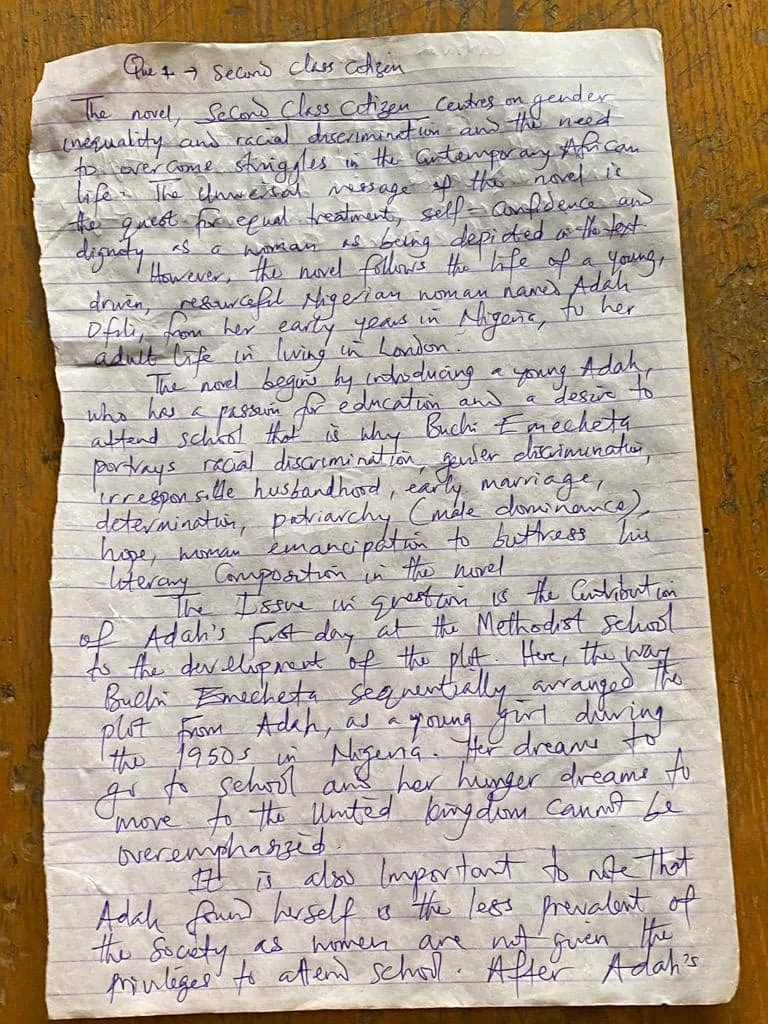 Que 1 → Second Class Citizen
The novel, Second Class Citizen Centres on gender
inequality and racial discrimination and the need
to overcome struggles in the Contemporary African
life. The Universal message of the novel is
the quest for equal treatment, self-confidence and
dignity as a woman as being depicted in the text
However, the novel follows the life of a young,
driven, resourceful Nigerian woman named Adah
Ofili, from her early years in Nigeria, to her
adult life in living in London.
The novel begins by introducing a young Adah,
who has a passion for education and a desire to
attend school that is why Buchi Emecheta
portrays racial discrimination, gender discrimination,
irresponsible husbandhood, early marriage,
determination, patriarchy (male dominance),
hope, woman emancipation to buttress his
literary Composition in the novel
The Issue in question is the Contribution
of Adah's first day at the Methodist School
to the development of the plot. Here, the way
Buchi Emecheta sequentially arranged the
plot from Adah, as a young girl during
the 1950s in Nigeria. Her dreams to
go to school and her hunger dreams to
move to the United kingdom cannot be
overemphasized.
It is also Important to note that
Adah found herself is the less prevalent of
the Society as women are not given the
privileges to attend school. After Adah's